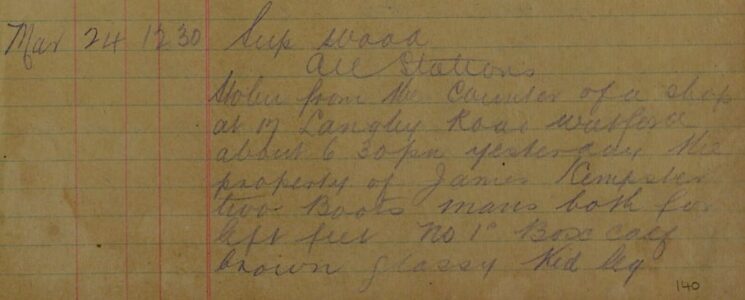 Mar 24 12 30 Sup Wood
All Stations
Stolen from the Counter of a shop
at 17 Langley Road Watford
about 6 30pm yesterday the
property of James Kempster
two Boots mans both for
left feet No 1° Box calf
brown glassy Kid leg
140